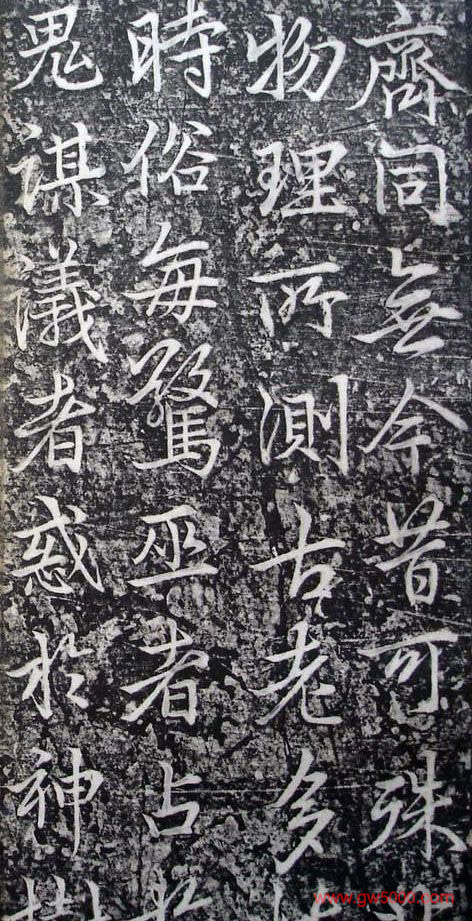 齊同無今昔可殊
物理所測古老多
時俗每驚巫者占
鬼謀議者惑於神
www.gw5000.com